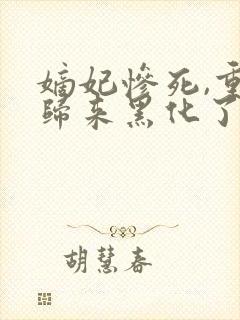 嫡妃慘死,重
歸来黑化了
胡慧春